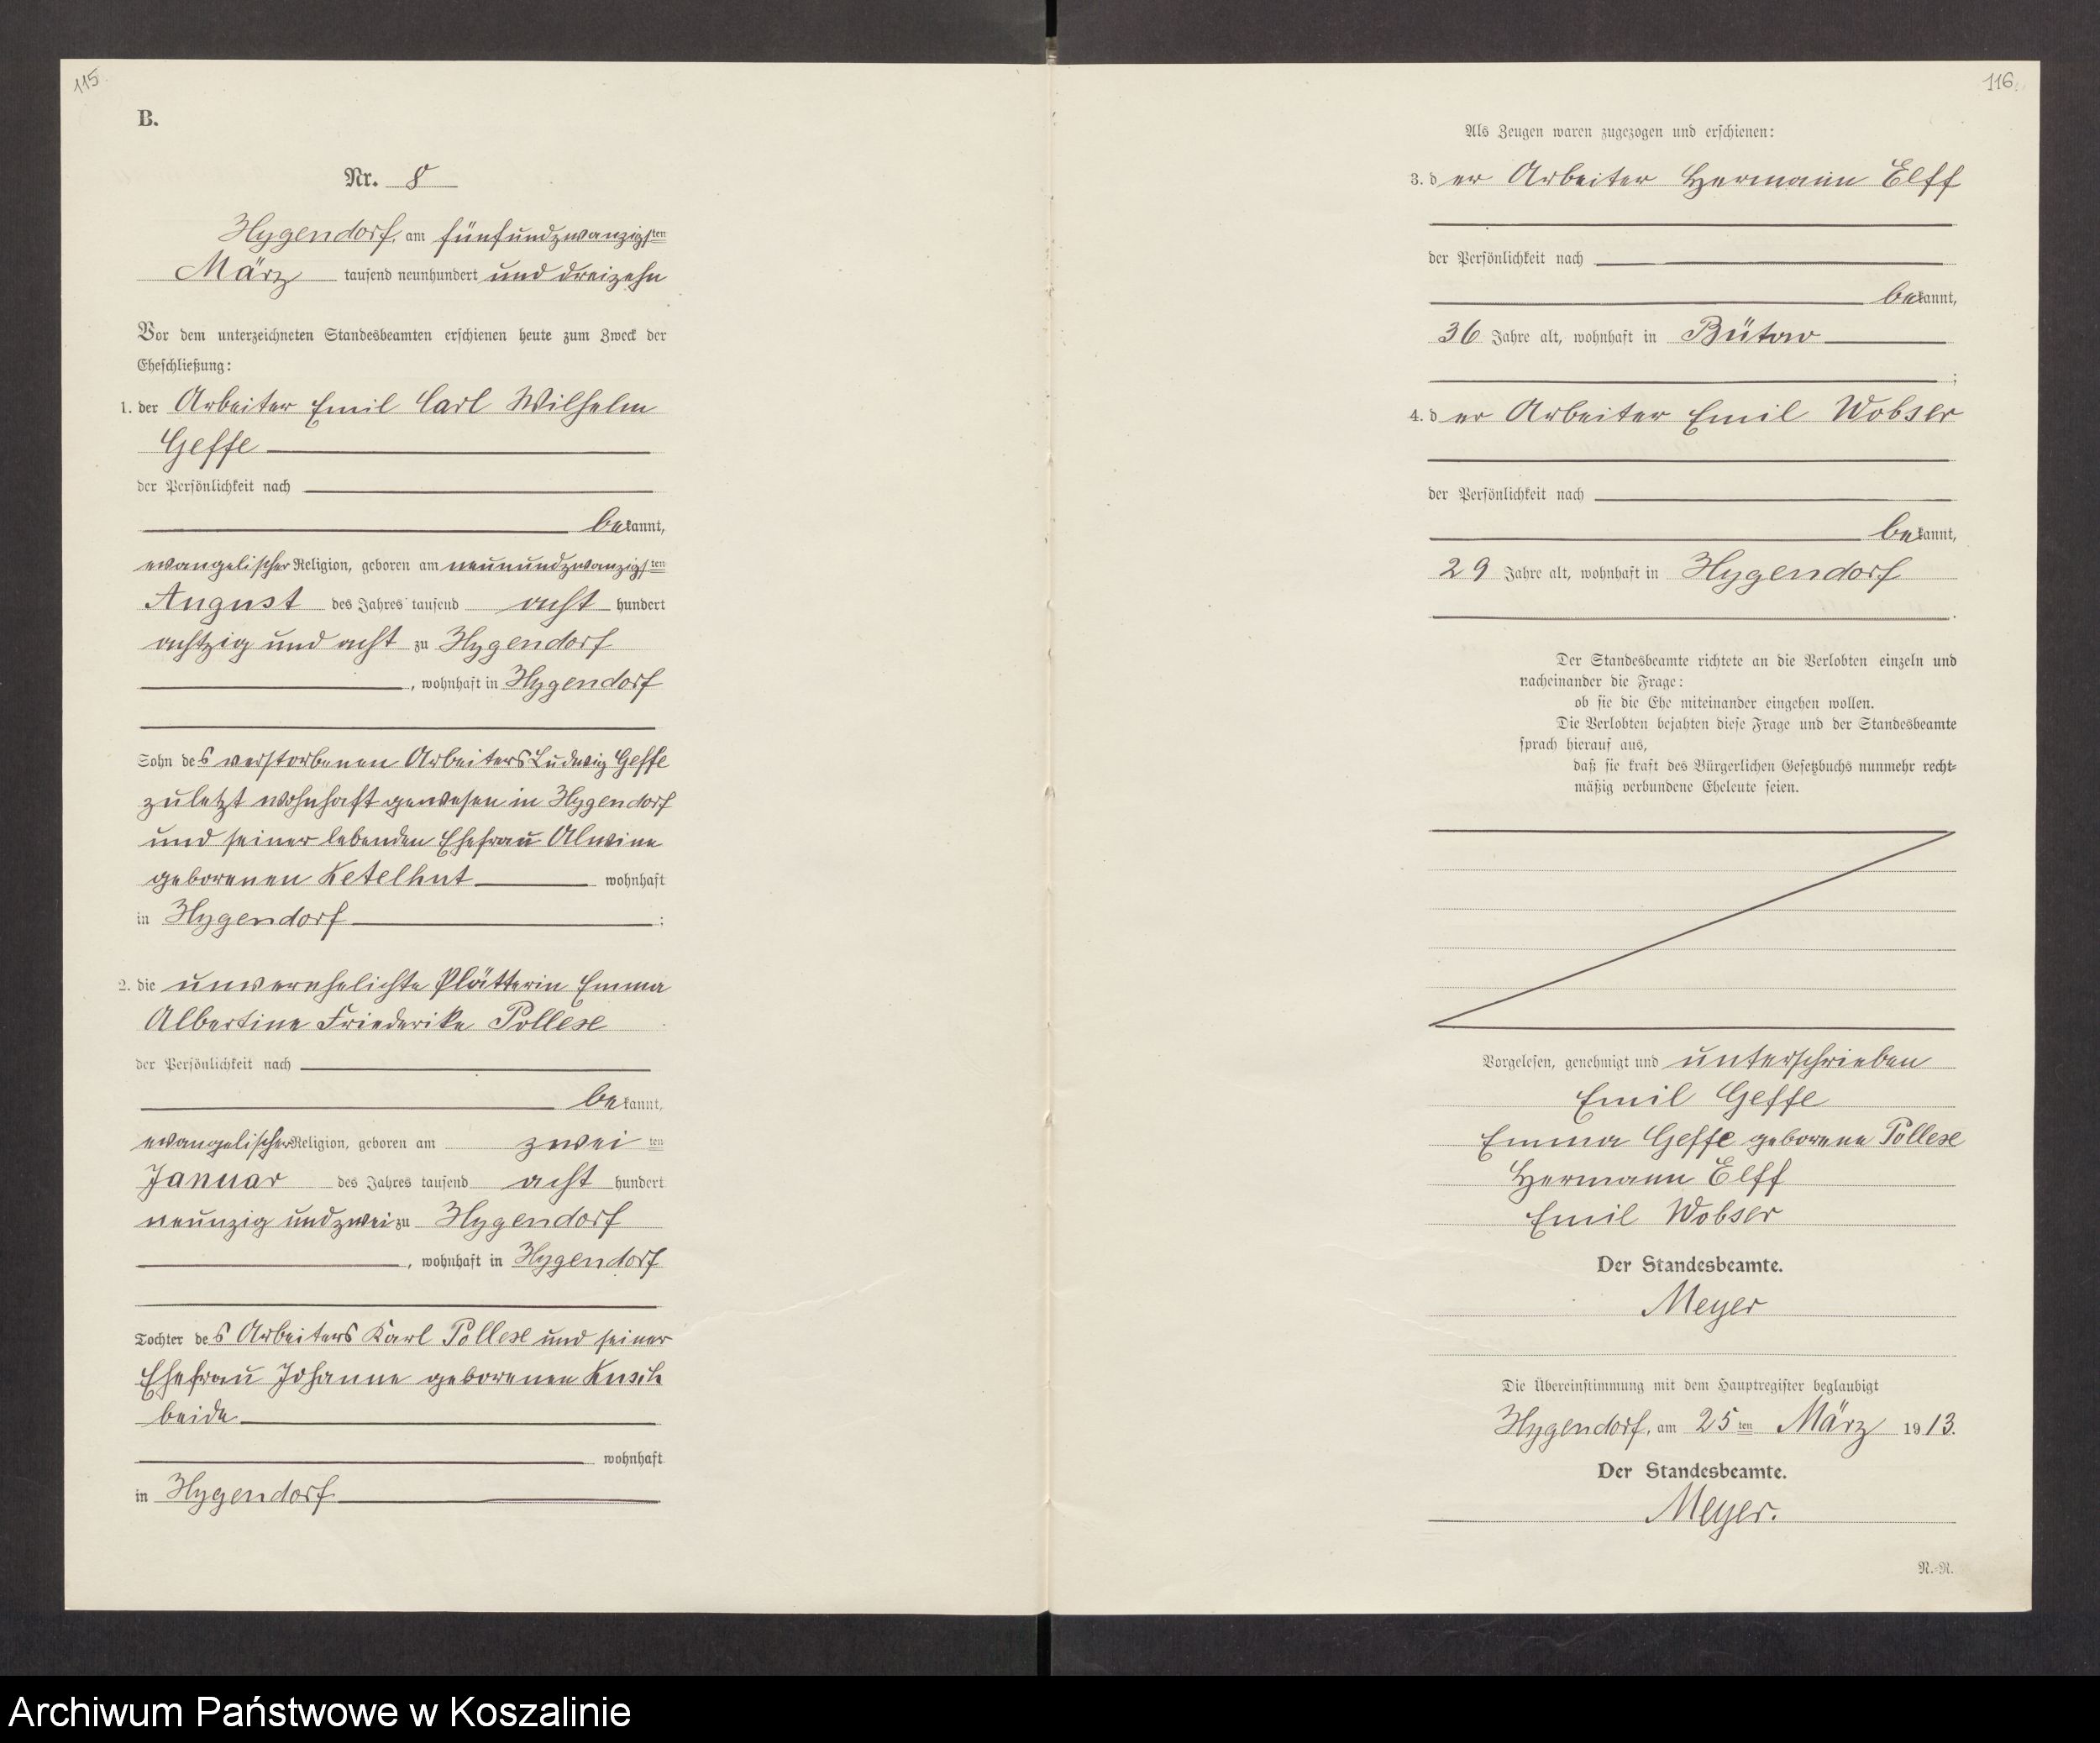 115.
B.
Nr. 8
Hygendorf, am fünfundzwanzigsten
März tausend neunhundert und dreizehn
Vor dem unterzeichneten Standesbeamten erschienen heute zum Zweck der
Eheschließung:
1. der Arbeiter Emil Carl Wilhelm
Geffe
der Persönlichkeit nach
bekannt,
evangelischer Religion, geboren am neunundzwanzigsten
August des Jahres tausend acht hundert
achtzig und acht zu Hygendorf
, wohnhaft in Hygendorf
Sohn des verstorbenen Arbeiters Ludwig Geffe
zuletzt wohnhaft gewesen in Hygendorf
und seiner lebenden Ehefrau Alwine
geborenen Ketelhut wohnhaft
in Hygendorf ;
2. die unverehelichte Plätterin Emma
Albertine Friederike Pollese
der Persönlichkeit nach
bekannt,
evangelischer Religion, geboren am zweiten
Januar des Jahres tausend acht hundert
neunzig und zwei zu Hygendorf
, wohnhaft in Hygendorf
Tochter des Arbeiters Karl Pollese und seiner
Ehefrau Johanne geborenen Kusch
beide
wohnhaft
in Hygendorf
116.
Als Zeugen waren zugezogen und erschienen:
3. der Arbeiter Hermann Elff
der Persönlichkeit nach
bekannt,
36 Jahre alt, wohnhaft in Bütow
;
4. der Arbeiter Emil Wobser
der Persönlichkeit nach
bekannt,
29 Jahre alt, wohnhaft in Hygendorf
.
Der Standesbeamte richtete an die Verlobten einzeln und
nacheinander die Frage:
ob sie die Ehe miteinander eingehen wollen.
Die Verlobten bejahten diese Frage und der Standesbeamte
sprach hierauf aus,
daß sie kraft des Bürgerlichen Gesetzbuchs nunmehr recht-
mäßig verbundene Eheleute seien.
Vorgelesen, genehmigt und unterschrieben
Emil Geffe
Emma Geffe geborene Pollese
Hermann Elff
Emil Wobser
Der Standesbeamte.
Meyer
Die Übereinstimmung mit dem Hauptregister beglaubigt
Hygendorf, am 25ten März 1913.
Der Standesbeamte.
Meyer.
N.-R.
Archiwum Państwowe w Koszalinie